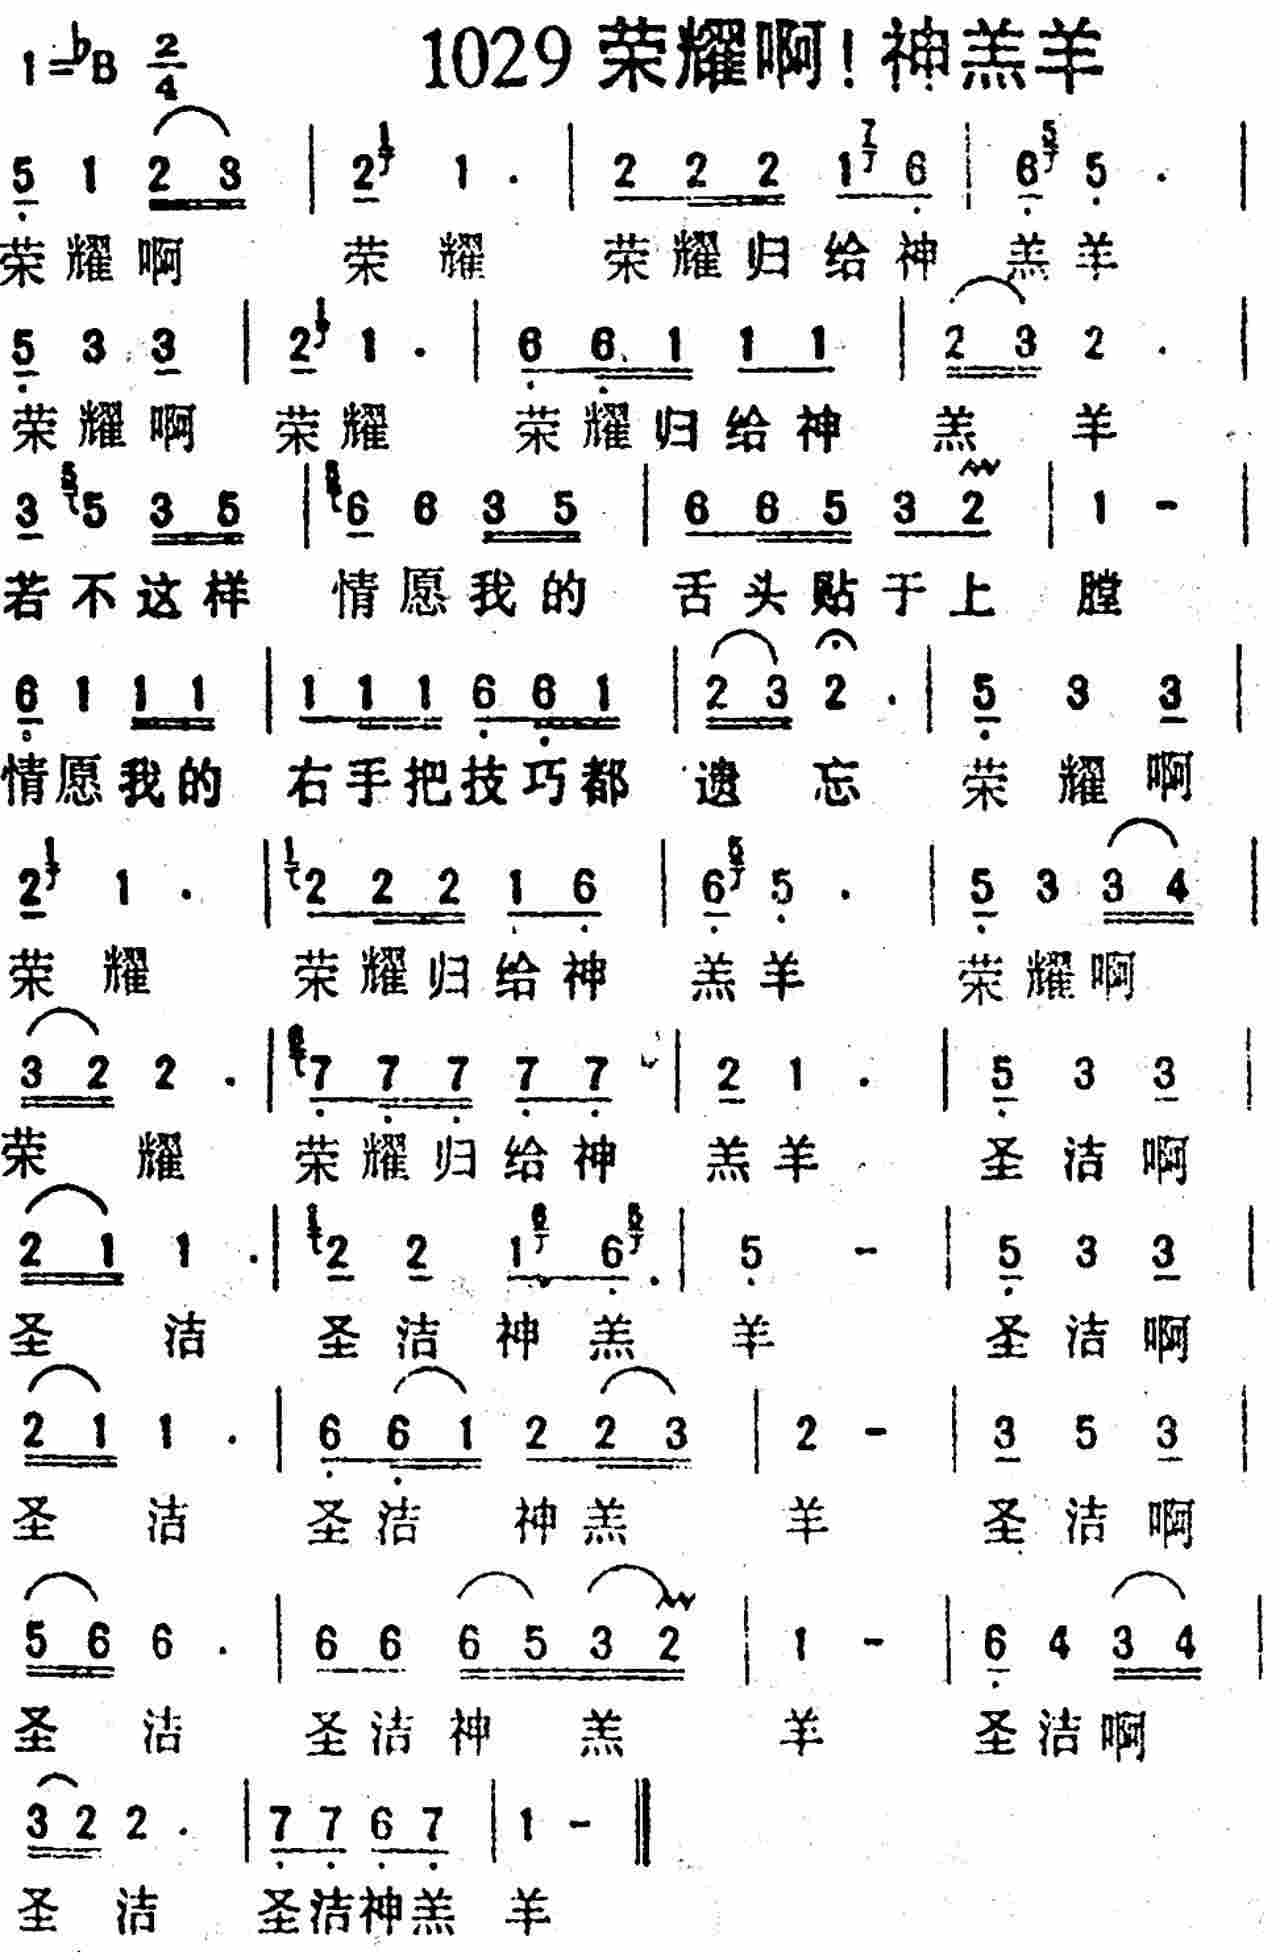 1=♭B 2/4 1029 荣耀啊！神羔羊
5 1 2 3 | 2 1 1 . | 2 2 2 1 7 6 | 6 5 5 . |
荣耀啊 荣耀 荣耀归给神 羔羊
5 3 3 | 2 1 1 . | 6 6 1 1 1 | 2 3 2 . |
荣耀啊 荣耀 荣耀归给神 羔 羊
3 5 5 3 5 | 6 6 3 5 | 6 6 5 3 2 | 1 - |
若不这样 情愿我的 舌头贴于上 膛
6 1 1 1 | 1 1 1 6 6 1 | 2 3 2 . | 5 3 3 |
情愿我的 右手把技巧都 遗 忘 荣耀啊
2 1 1 . | 1 2 2 2 1 6 | 6 5 5 . | 5 3 3 4 |
荣耀 荣耀归给神 羔羊 荣耀啊
3 2 2 . | 6 7 7 7 7 7 | 2 1 . | 5 3 3 |
荣 耀 荣耀归给神 羔羊 圣洁啊
2 1 1 . | 1 2 2 1 6 6 5 . | 5 - | 5 3 3 |
圣 洁 圣洁神羔 羊 圣洁啊
2 1 1 . | 6 6 1 2 2 3 | 2 - | 3 5 3 |
圣 洁 圣洁 神羔 羊 圣洁啊
5 6 6 . | 6 6 6 5 3 2 | 1 - | 6 4 3 4 |
圣 洁 圣洁神 羔 羊 圣洁啊
3 2 2 . | 7 7 6 7 | 1 - ‖
圣 洁 圣洁神羔 羊